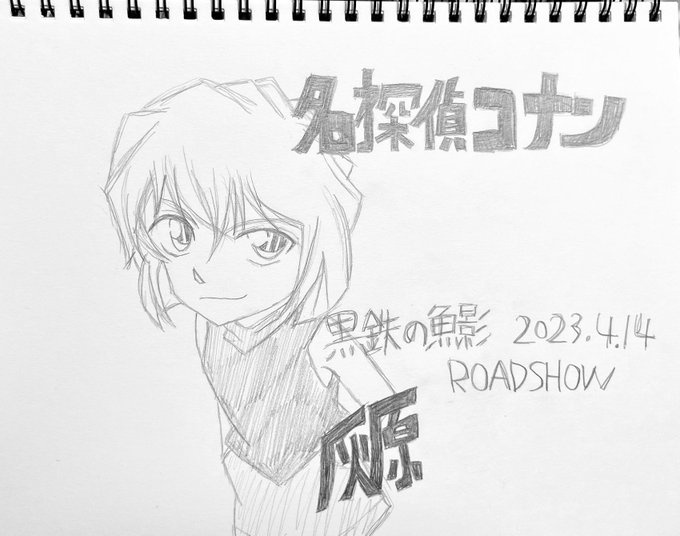 名探偵コナン
黒鉄の魚影 2023.4.14
ROADSHOW
灰原